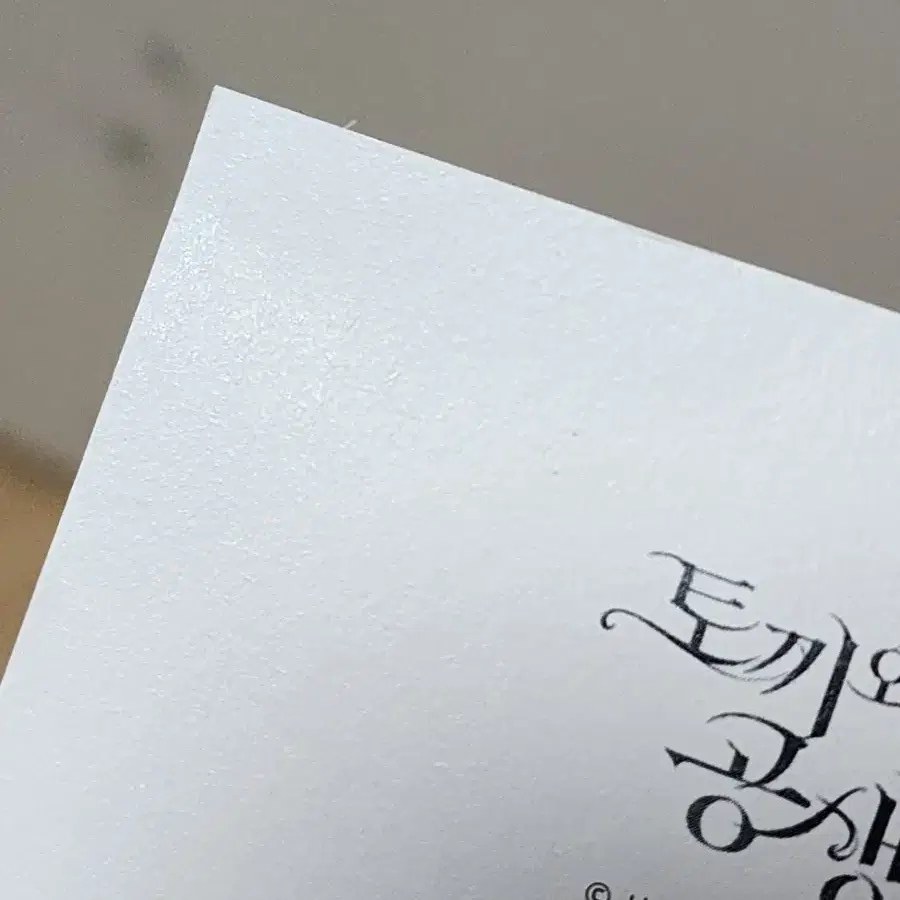 토끼와
공생
©